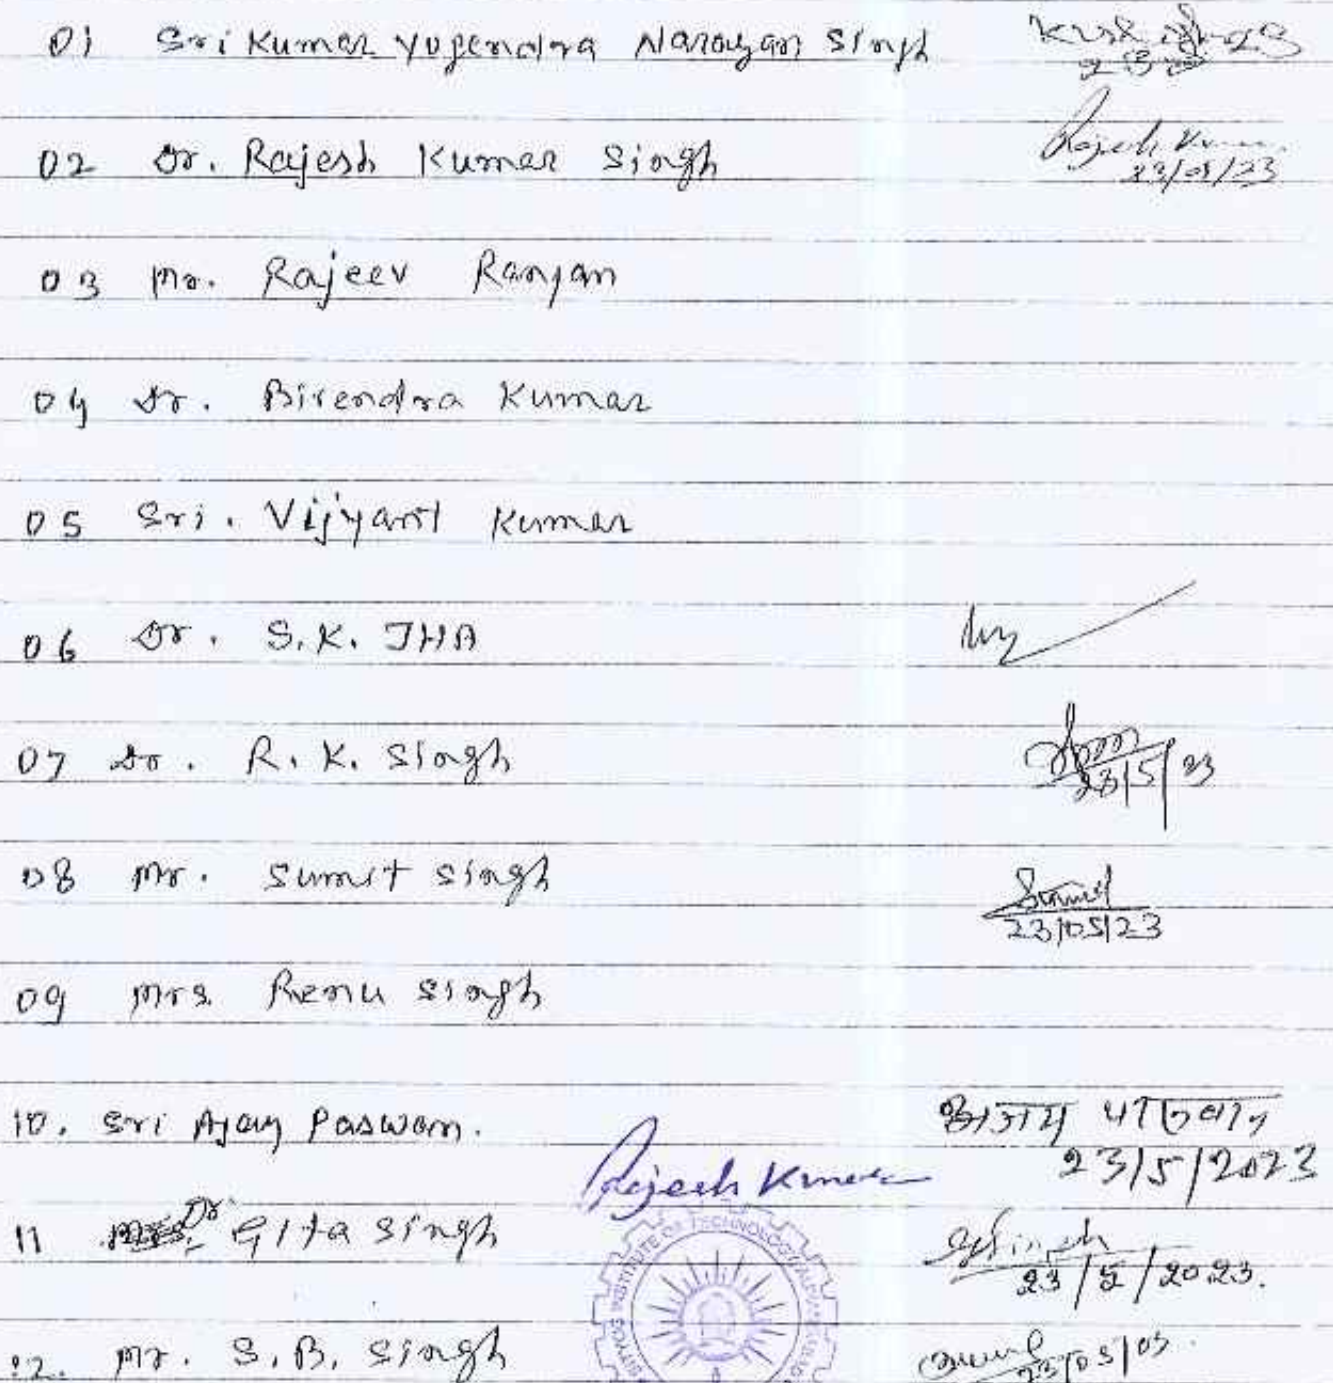 01 Sri Kumar Yogendra Narayan Singh
02 Dr. Rajesh Kumar Singh Rajesh Kumar 23/05/23
03 Mr. Rajeev Ranjan
04 Dr. Birendra Kumar
05 Sri. Vijyant Kumar
06 Dr. S.K. JHA
07 Dr. R.K. Singh 23/5/23
08 Mr. Sumit Singh Sumit 23/05/23
09 Mrs. Renu Singh
10. Sri Ajay Paswan. अजय पासवान 23/5/2023
Rajesh Kumar
11 Dr Gita Singh 23/5/2023.
INSTITUTE OF TECHNOLOGY
12. Mr. S.B. Singh